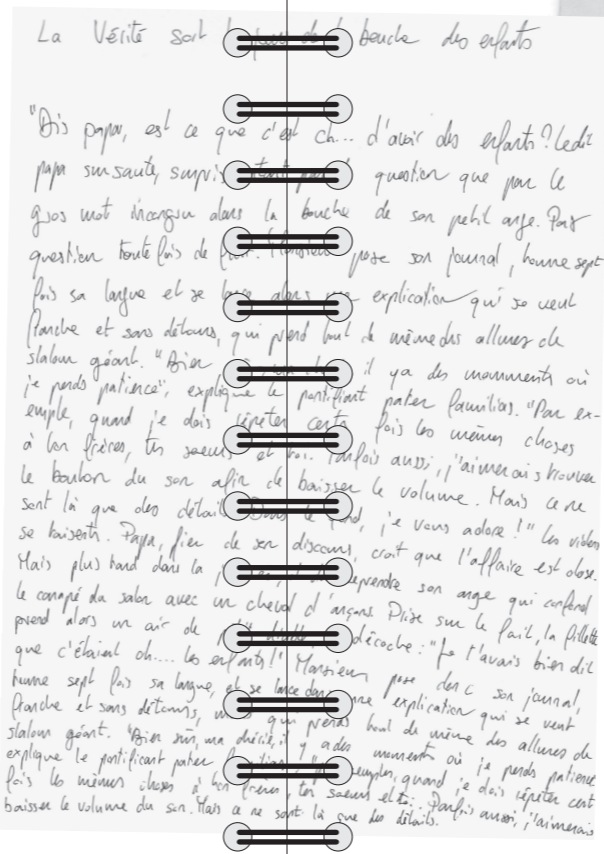 La Vérité sort de la bouche des enfants
"Dis papa, est ce que c'est ch... d'avoir des enfants? Ledit
papa sursaute, surpris tant par question que par le
gros mot incongru dans la bouche de son petit ange. Pas
question toutefois de fuir. Monsieur pose son journal, tourne sept
fois sa langue et se lance dans une explication qui se veut
franche et sans détours, qui prend tout de même des allures de
slalom géant. "Bien il y a des moments où
je perds patience", explique le pontifiant pater familias. "Par ex-
emple, quand je dois répéter cent fois les mêmes choses
à ton frères, tes soeurs et toi. Parfois aussi, j'aimerais trouver
le bouton du son afin de baisser le volume. Mais ce ne
sont là que des détails. Dans le fond, je vous adore!" Les
se taisent. Papa, fier de son discours, croit que l'affaire est close.
Mais plus tard dans la reprendre son ange qui confond
le canapé du salon avec un cheval d'arçons. Prise sur le fait, la fillette
prend alors un air de décoche: "Je t'avais bien dit
que c'étaient ch.... les enfants!" Monsieur pose donc son journal,
tourne sept fois sa langue, et se lance dans une explication qui se veut
franche et sans détours, mais qui prends tout de même des allures de
slalom géant. "Bien sûr, ma chérie, il y a des moments où je perds patience
explique le pontificant pater exemples, quand je dois répéter cent
fois les mêmes choses à ton frères, tes soeurs et toi. Parfois aussi, j'aimerais
baisser le volume du son. Mais ce ne sont là que des détails.